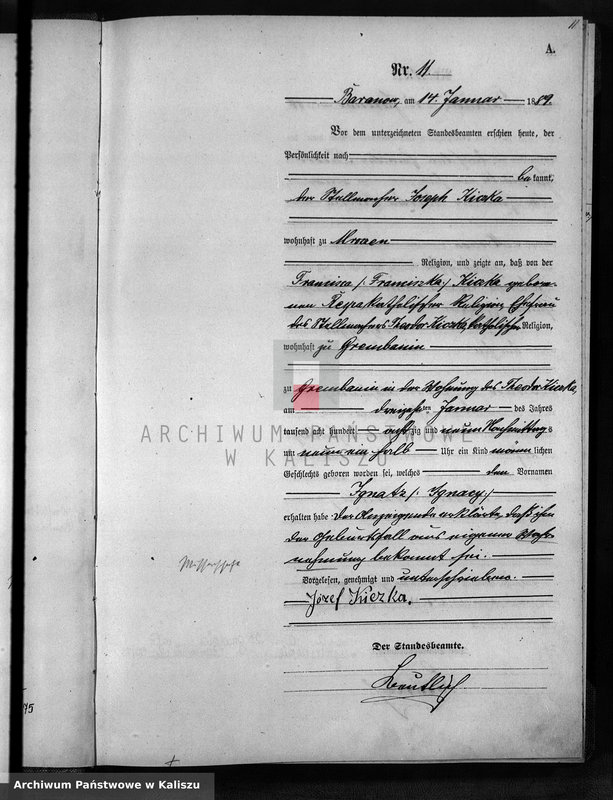 11
A.
Nr. 11.
Baranow, am 14. Januar 1889.
Vor dem unterzeichneten Standesbeamten erschien heute, der
Persönlichkeit nach
bekannt,
der Stellmacher Joseph Kiczka
wohnhaft zu Mroczen
Religion, und zeigte an, daß von der
Francisca /: Franciszka :/ Kiczka gebore-
nen Rzepka katholischer Religion, Ehefrau
des Stellmachers Theodor Kiczka, katholischer Religion,
wohnhaft zu Grembanin
zu Grembanin in der Wohnung des Theodor Kiczka,
am dreizehnten Januar des Jahres
tausend acht hundert achtzig und neun Nachmittags
um neun ein halb Uhr ein Kind männlichen
Geschlechts geboren worden sei, welches den Vornamen
Ignatz /: Ignacy :/
erhalten habe. Der Anzeigende erklärte, daß ihm
der Geburtsfall aus eigener Wahr-
nehmung bekannt sei.
Vorgelesen, genehmigt und unterschrieben.
Józef Kiczka.
Der Standesbeamte.
ARCHIWUM PAŃSTWOWE
W KALISZU
75
Archiwum Państwowe w Kaliszu